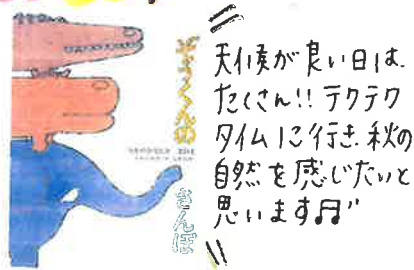 ぞうくんの
さんぽ
天候が良い日は、
たくさん!! テクテク
タイムに行き、秋の
自然を感じたいと
思います♬"